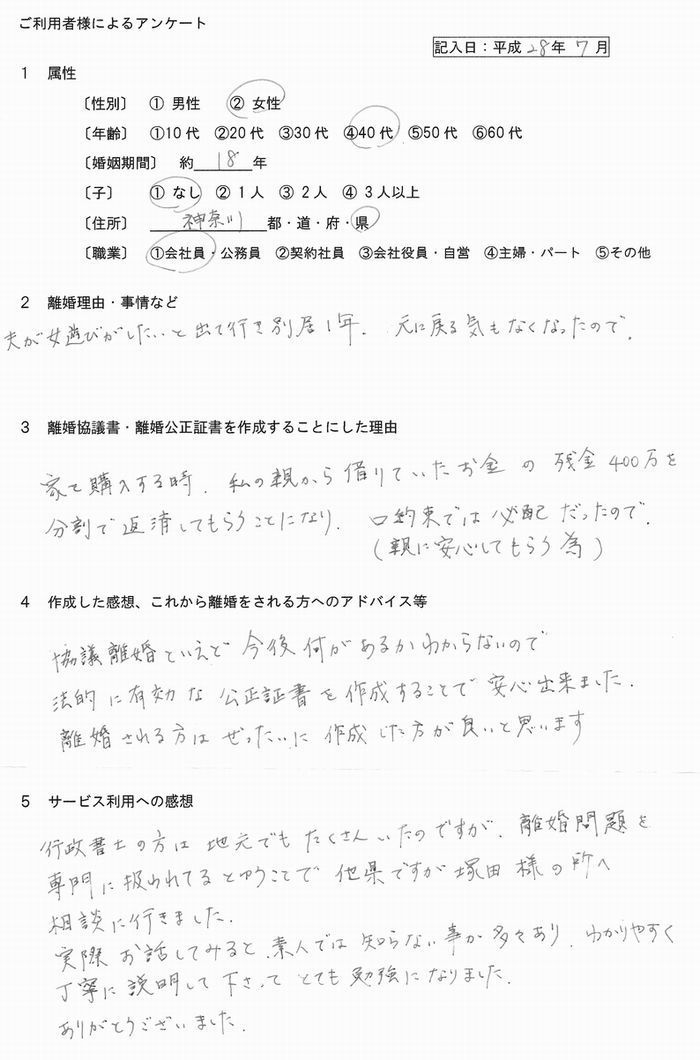 ご利用者様によるアンケート
記入日：平成 28年 7月
1 属性
〔性別〕 ① 男性 ② 女性
〔年齢〕 ①10代 ②20代 ③30代 ④40代 ⑤50代 ⑥60代
〔婚姻期間〕 約 18 年
〔子〕 ① なし ② 1人 ③ 2人 ④ 3人以上
〔住所〕 神奈川 都・道・府・県
〔職業〕 ①会社員・公務員 ②契約社員 ③会社役員・自営 ④主婦・パート ⑤その他
2 離婚理由・事情など
夫が女遊びがしたいと出て行き別居1年. 元に戻る気もなくなったので.
3 離婚協議書・離婚公正証書を作成することにした理由
家を購入する時. 私の親から借りていたお金の残金400万を
分割で返済してもらうことになり. 口約束では心配だったので.
(親に安心してもらう為)
4 作成した感想、これから離婚をされる方へのアドバイス等
協議離婚といえど今後何があるかわからないので
法的に有効な公正証書を作成することで安心出来ました.
離婚される方はぜったいに作成した方が良いと思います
5 サービス利用への感想
行政書士の方は地元でもたくさんいたのですが. 離婚問題を
専門に扱われてるとゆうことで他県ですが塚田様の所へ
相談に行きました.
実際お話してみると、素人では知らない事が多々あり. わかりやすく
丁寧に説明して下さってとても勉強になりました.
ありがとうございました.